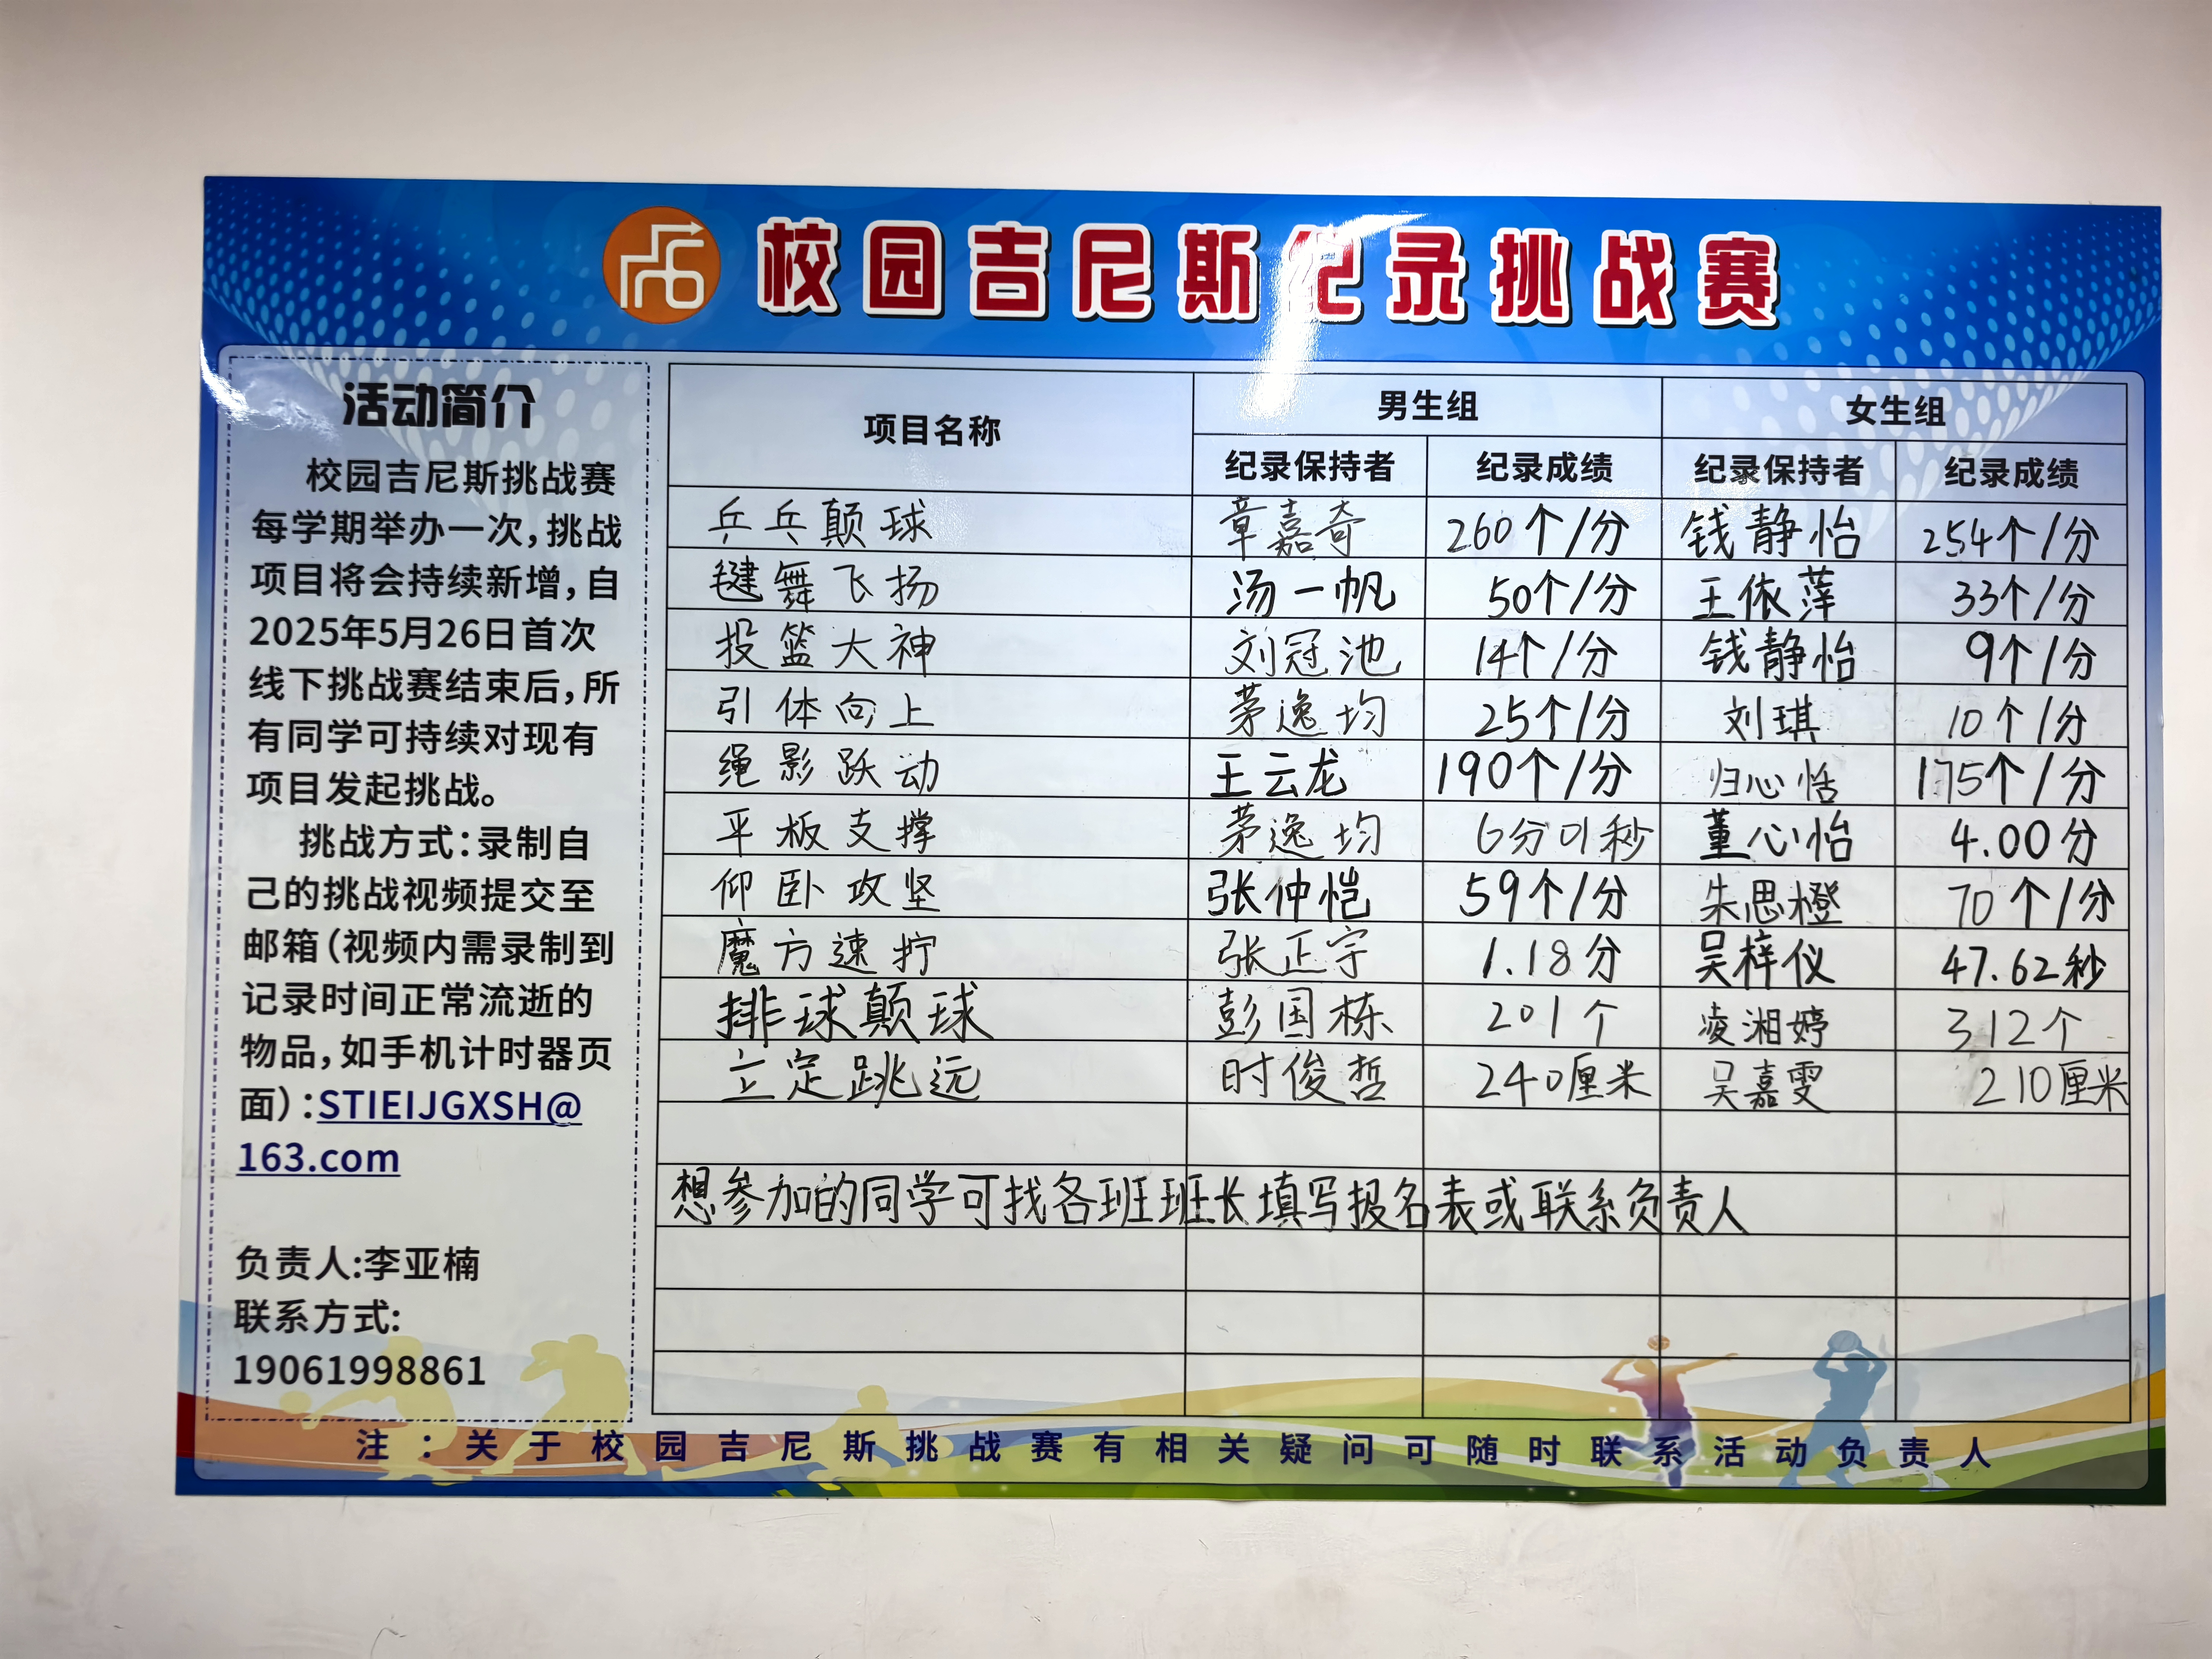 校园吉尼斯纪录挑战赛
活动简介
校园吉尼斯挑战赛
每学期举办一次，挑战
项目将会持续新增，自
2025年5月26日首次
线下挑战赛结束后，所
有同学可持续对现有
项目发起挑战。
挑战方式：录制自
己的挑战视频提交至
邮箱（视频内需录制到
记录时间正常流逝的
物品，如手机计时器页
面）：STIEIJGXSH@
163.com
负责人:李亚楠
联系方式:
19061998861
项目名称 男生组 女生组
纪录保持者 纪录成绩 纪录保持者 纪录成绩
乒乓颠球 章嘉奇 260个/分 钱静怡 254个/分
毽舞飞扬 汤一帆 50个/分 王依萍 33个/分
投篮大神 刘冠池 14个/分 钱静怡 9个/分
引体向上 茅逸均 25个/分 刘琪 10个/分
绳影跃动 王云龙 190个/分 归心恬 175个/分
平板支撑 茅逸均 6分01秒 董心怡 4.00分
仰卧攻坚 张仲恺 59个/分 朱思橙 70个/分
魔方速拧 张正宇 1.18分 吴梓仪 47.62秒
排球颠球 彭国栋 201个 凌湘婷 312个
立定跳远 时俊哲 240厘米 吴嘉雯 210厘米
想参加的同学可找各班班长填写报名表或联系负责人
注：关于校园吉尼斯挑战赛有相关疑问可随时联系活动负责人